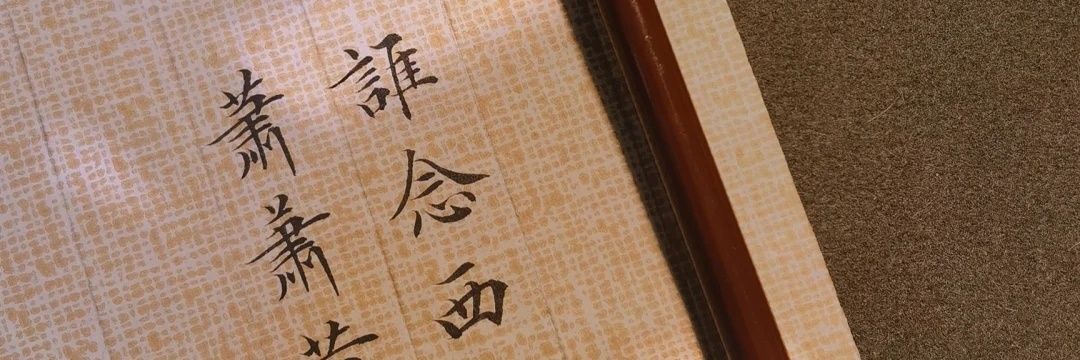 誰念西
蕭蕭黄